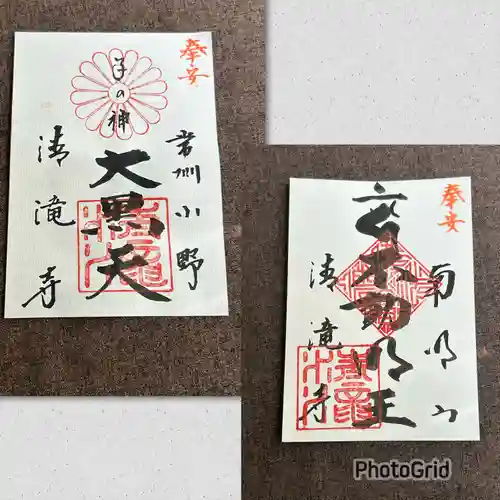 奉安
常州小野
子の神
大黒天
清滝寺
奉安
南明山
大不動明王
清滝寺
PhotoGrid